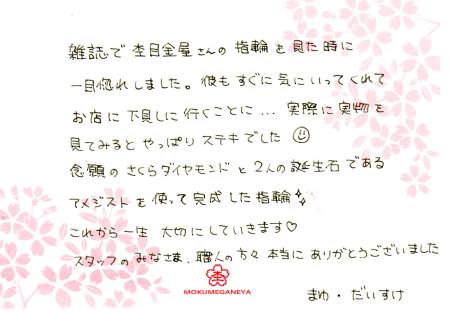 雑誌で杢目金屋さんの指輪を見た時に
一目惚れしました。彼もすぐに気にいってくれて
お店に下見しに行くことに… 実際に実物を
見てみるとやっぱりステキでした ☺
念願のさくらダイヤモンドと2人の誕生石である
アメジストを使って完成した指輪✨
これから一生 大切にしていきます♡
スタッフのみなさま、職人の方々 本当にありがとうございました
MOKUMEGANEYA
まゆ・だいすけ